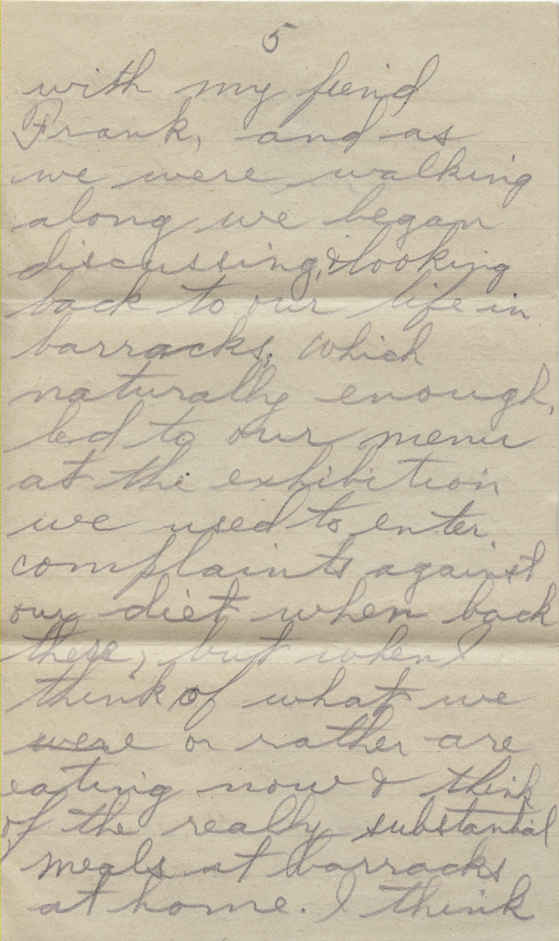 5
with my fiend
Frank, and as
we were walking
along we began
discussing, & looking
back to our life in
barracks. Which
naturally enough,
led to our menu
at the exhibition
we used to enter
complaints against
our diet when back
there, but when I
think of what we
were or rather are
eating now & think
of the really substantial
meals at barracks
at home. I think